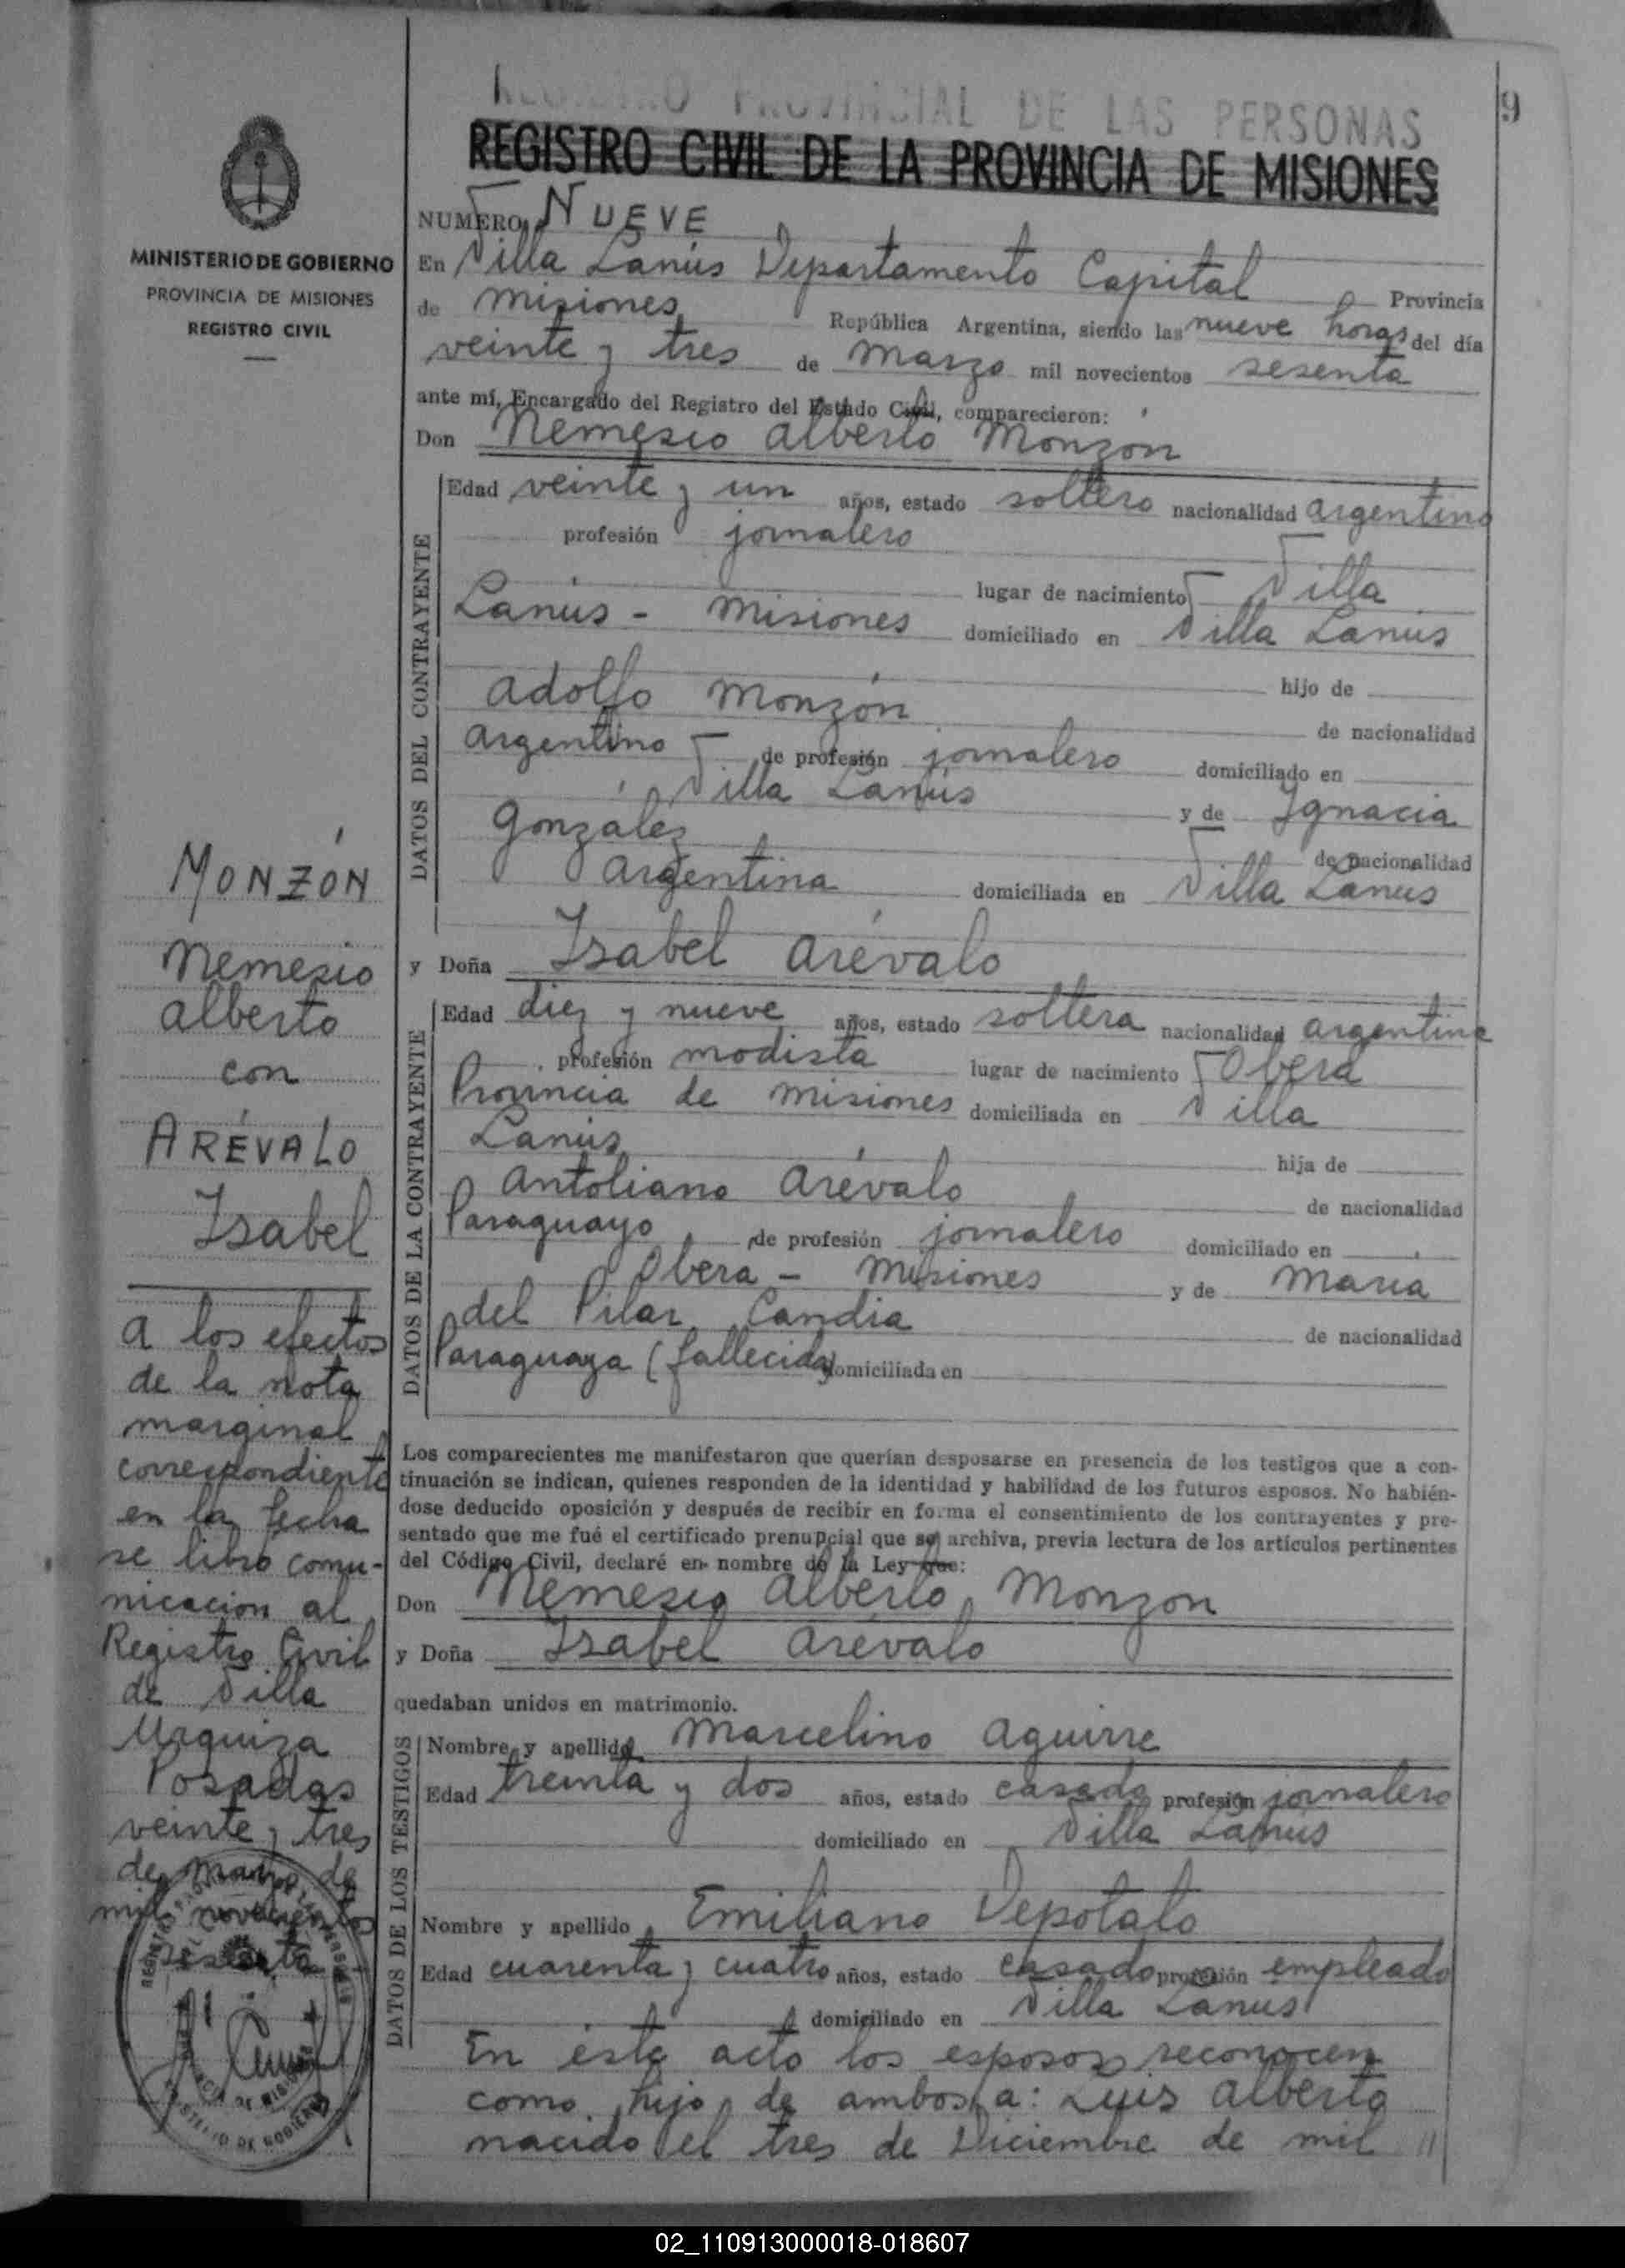 9
REGISTRO PROVINCIAL DE LAS PERSONAS
REGISTRO CIVIL DE LA PROVINCIA DE MISIONES
MINISTERIO DE GOBIERNO
PROVINCIA DE MISIONES
REGISTRO CIVIL
NUMERO NUEVE
En Villa Lanús Departamento Capital Provincia
de Misiones República Argentina, siendo las nueve horas del día
veinte y tres de Marzo mil novecientos sesenta
ante mí, Encargado del Registro del Estado Civil, comparecieron:
Don Nemesio Alberto Monzón
DATOS DEL CONTRAYENTE
Edad veinte y un años, estado soltero nacionalidad argentino
profesión jornalero
lugar de nacimiento Villa
Lanús - Misiones domiciliado en Villa Lanús
hijo de
Adolfo Monzón
de nacionalidad
argentino de profesión jornalero domiciliado en
Villa Lanús y de Ygnacia
González
de nacionalidad
argentina domiciliada en Villa Lanús
y Doña Isabel Arévalo
DATOS DE LA CONTRAYENTE
Edad diez y nueve años, estado soltera nacionalidad argentina
profesión modista lugar de nacimiento Oberá
Provincia de Misiones domiciliada en Villa
Lanús
hija de
Antoliano Arévalo
de nacionalidad
Paraguayo de profesión jornalero domiciliado en
Oberá - Misiones y de María
del Pilar Candia
de nacionalidad
Paraguaya (fallecida) domiciliada en
Los comparecientes me manifestaron que querían desposarse en presencia de los testigos que a con-
tinuación se indican, quienes responden de la identidad y habilidad de los futuros esposos. No habién-
dose deducido oposición y después de recibir en forma el consentimiento de los contrayentes y pre-
sentado que me fué el certificado prenupcial que se archiva, previa lectura de los artículos pertinentes
del Código Civil, declaré en nombre de la Ley que:
Don Nemesio Alberto Monzón
y Doña Isabel Arévalo
quedaban unidos en matrimonio.
DATOS DE LOS TESTIGOS
Nombre y apellido Marcelino Aguirre
Edad treinta y dos años, estado casado profesión jornalero
domiciliado en Villa Lanús
Nombre y apellido Emiliano Depotalo
Edad cuarenta y cuatro años, estado casado profesión empleado
domiciliado en Villa Lanús
En éste acto los esposos reconocen
como hijo de ambos a: Luis Alberto
nacido el tres de Diciembre de mil //
MONZÓN
Nemesio
Alberto
con
ARÉVALO
Isabel
A los efectos
de la nota
marginal
correspondiente
en la fecha
se libró comu-
nicación al
Registro Civil
de Villa
Urquiza
Posadas
veinte y tres
de Marzo de
mil novecientos
sesenta
02_110913000018-018607